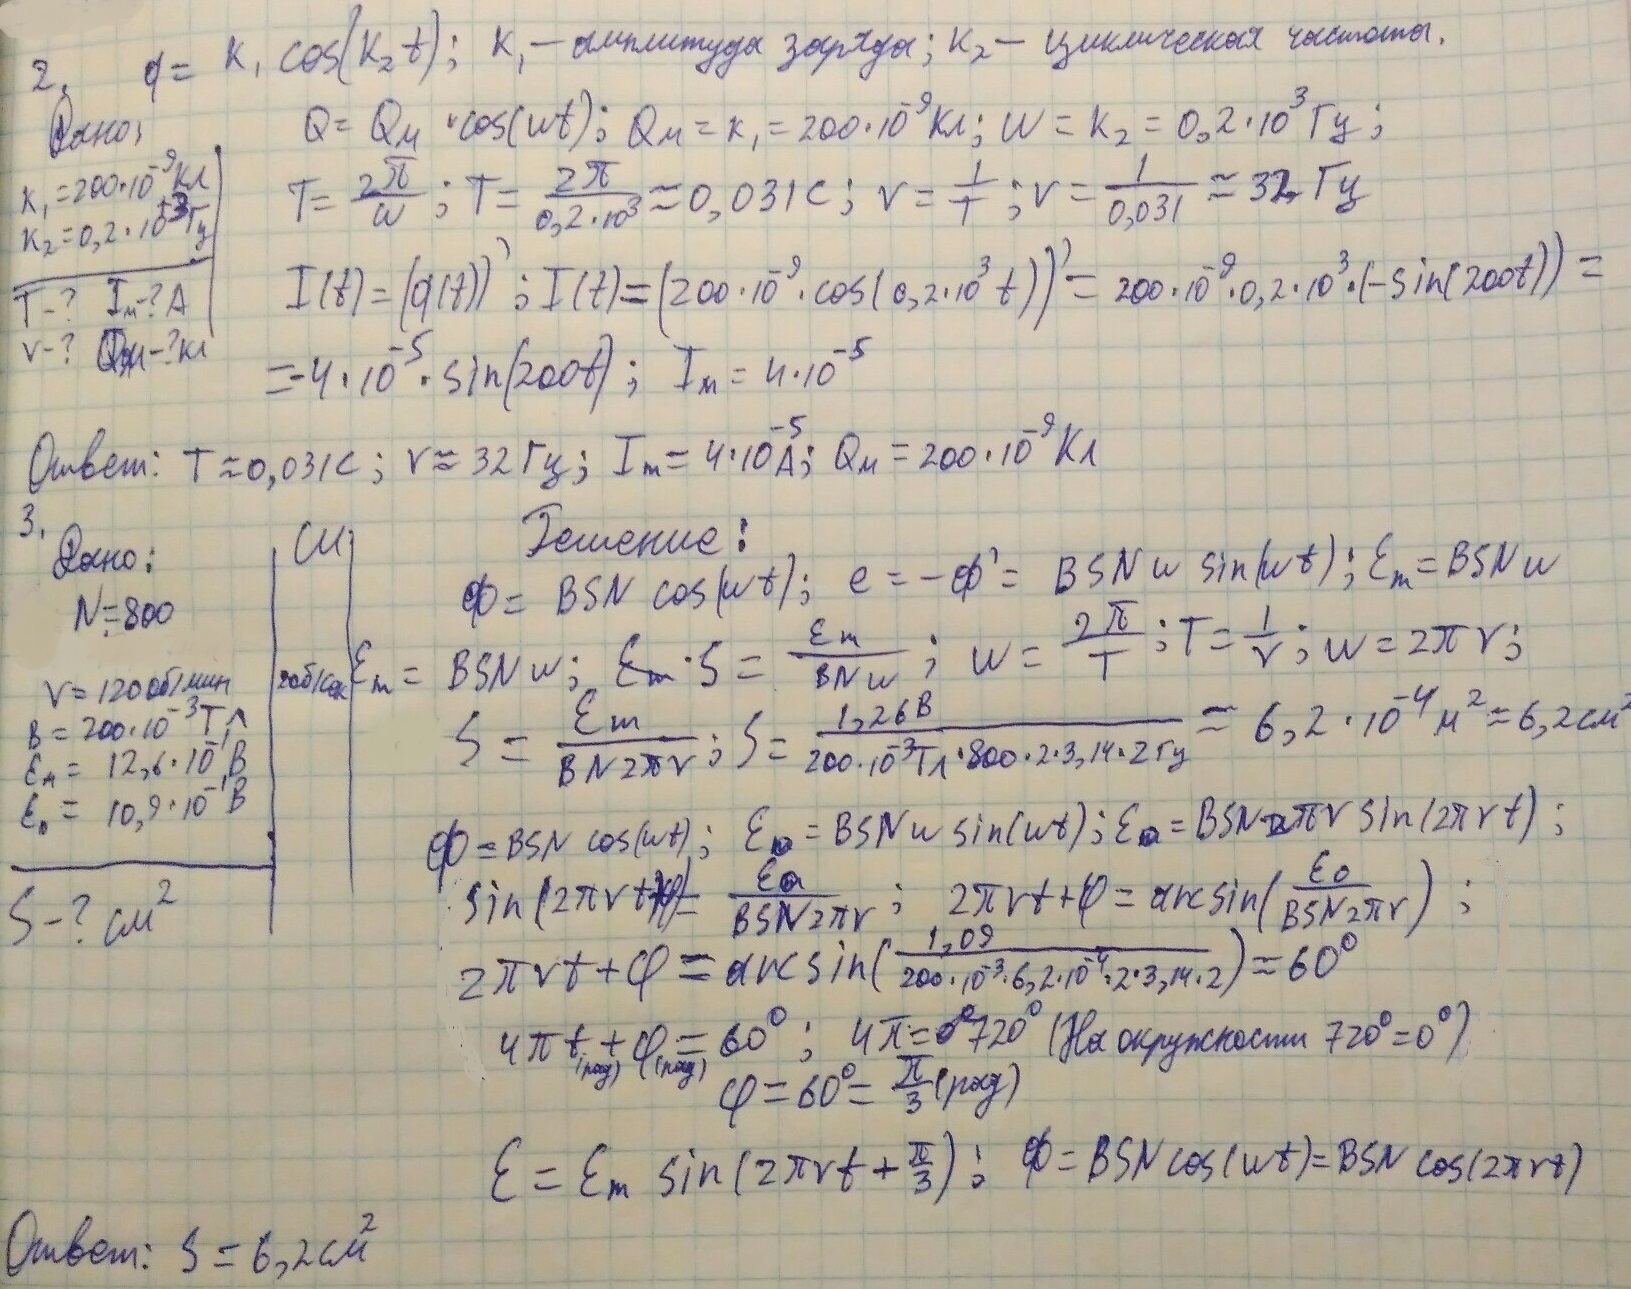 2. q = K₁ cos(K₂t); K₁ – амплитуда заряда; K₂ – циклическая частота.
Дано:
K₁ = 200·10⁻⁹Кл
K₂ = 0,2·10⁺³Гц
T-? Iм-? А
ν-? Qм-? Кл
Q = Qм · cos(ωt); Qм = K₁ = 200·10⁻⁹Кл; ω = K₂ = 0,2·10³ Гц;
T = 2π/ω; T = 2π/(0,2·10³) ≈ 0,031 с; ν = 1/T; ν = 1/0,031 ≈ 32 Гц
I(t) = (q(t))'; I(t) = (200·10⁻⁹·cos(0,2·10³t))' = 200·10⁻⁹·0,2·10³·(-sin(200t)) =
= -4·10⁻⁵·sin(200t); Iм = 4·10⁻⁵
Ответ: T ≈ 0,031с; ν ≈ 32 Гц; Im = 4·10⁻⁵А; Qм = 200·10⁻⁹Кл
3.
Дано:
N = 800
ν = 120 об/мин
B = 200·10⁻³Тл
εм = 12,6·10⁻¹В
ε₀ = 10,9·10⁻¹В
S-? см²
СИ
2об/сек
Решение:
Ф = BSN cos(ωt); e = -Ф' = BSNω sin(ωt); εm = BSNω
εm = BSNω; εm · S = εm/(BNω); ω = 2π/T; T = 1/ν; ω = 2πν;
S = εm/(BN2πν); S = 1,26В/(200·10⁻³Тл·800·2·3,14·2Гц) ≈ 6,2·10⁻⁴м² ≈ 6,2см²
Ф = BSN cos(ωt); ε₀ = BSNω sin(ωt); ε₀ = BSN2πν sin(2πνt);
sin(2πνt+φ) = ε₀/(BSN2πν); 2πνt+φ = arcsin(ε₀/(BSN2πν));
2πνt+φ = arcsin(1,09/(200·10⁻³·6,2·10⁻⁴·2·3,14·2)) ≈ 60°
4πt(рад) + φ(рад) = 60°; 4π = 720° (На окружности 720° = 0°)
φ = 60° = π/3 (рад)
ε = εm sin(2πνt + π/3); Ф = BSN cos(ωt) = BSN cos(2πνt)
Ответ: S = 6,2см²